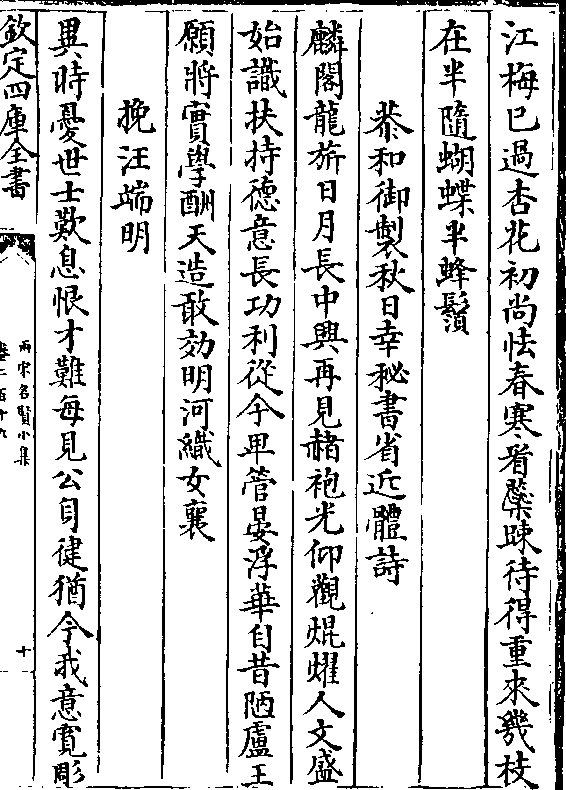 江梅已過杏花初尚怯春寒着蘂踈待得重來幾枝
在半隨蝴蝶半蜂鬚
恭和御製秋日幸秘書省近體詩
麟閣龍旂日月長中興再見赭袍光仰觀焜燿人文盛
始識扶持德意長功利從今卑管晏浮華自昔陋盧王
願將實學酬天造敢效明河織女襄
挽汪端明
異時憂世士歎息恨才難每見公身健猶令我意寛彫
欽定四庫全書
兩宋名賢小集
卷二百十九
十